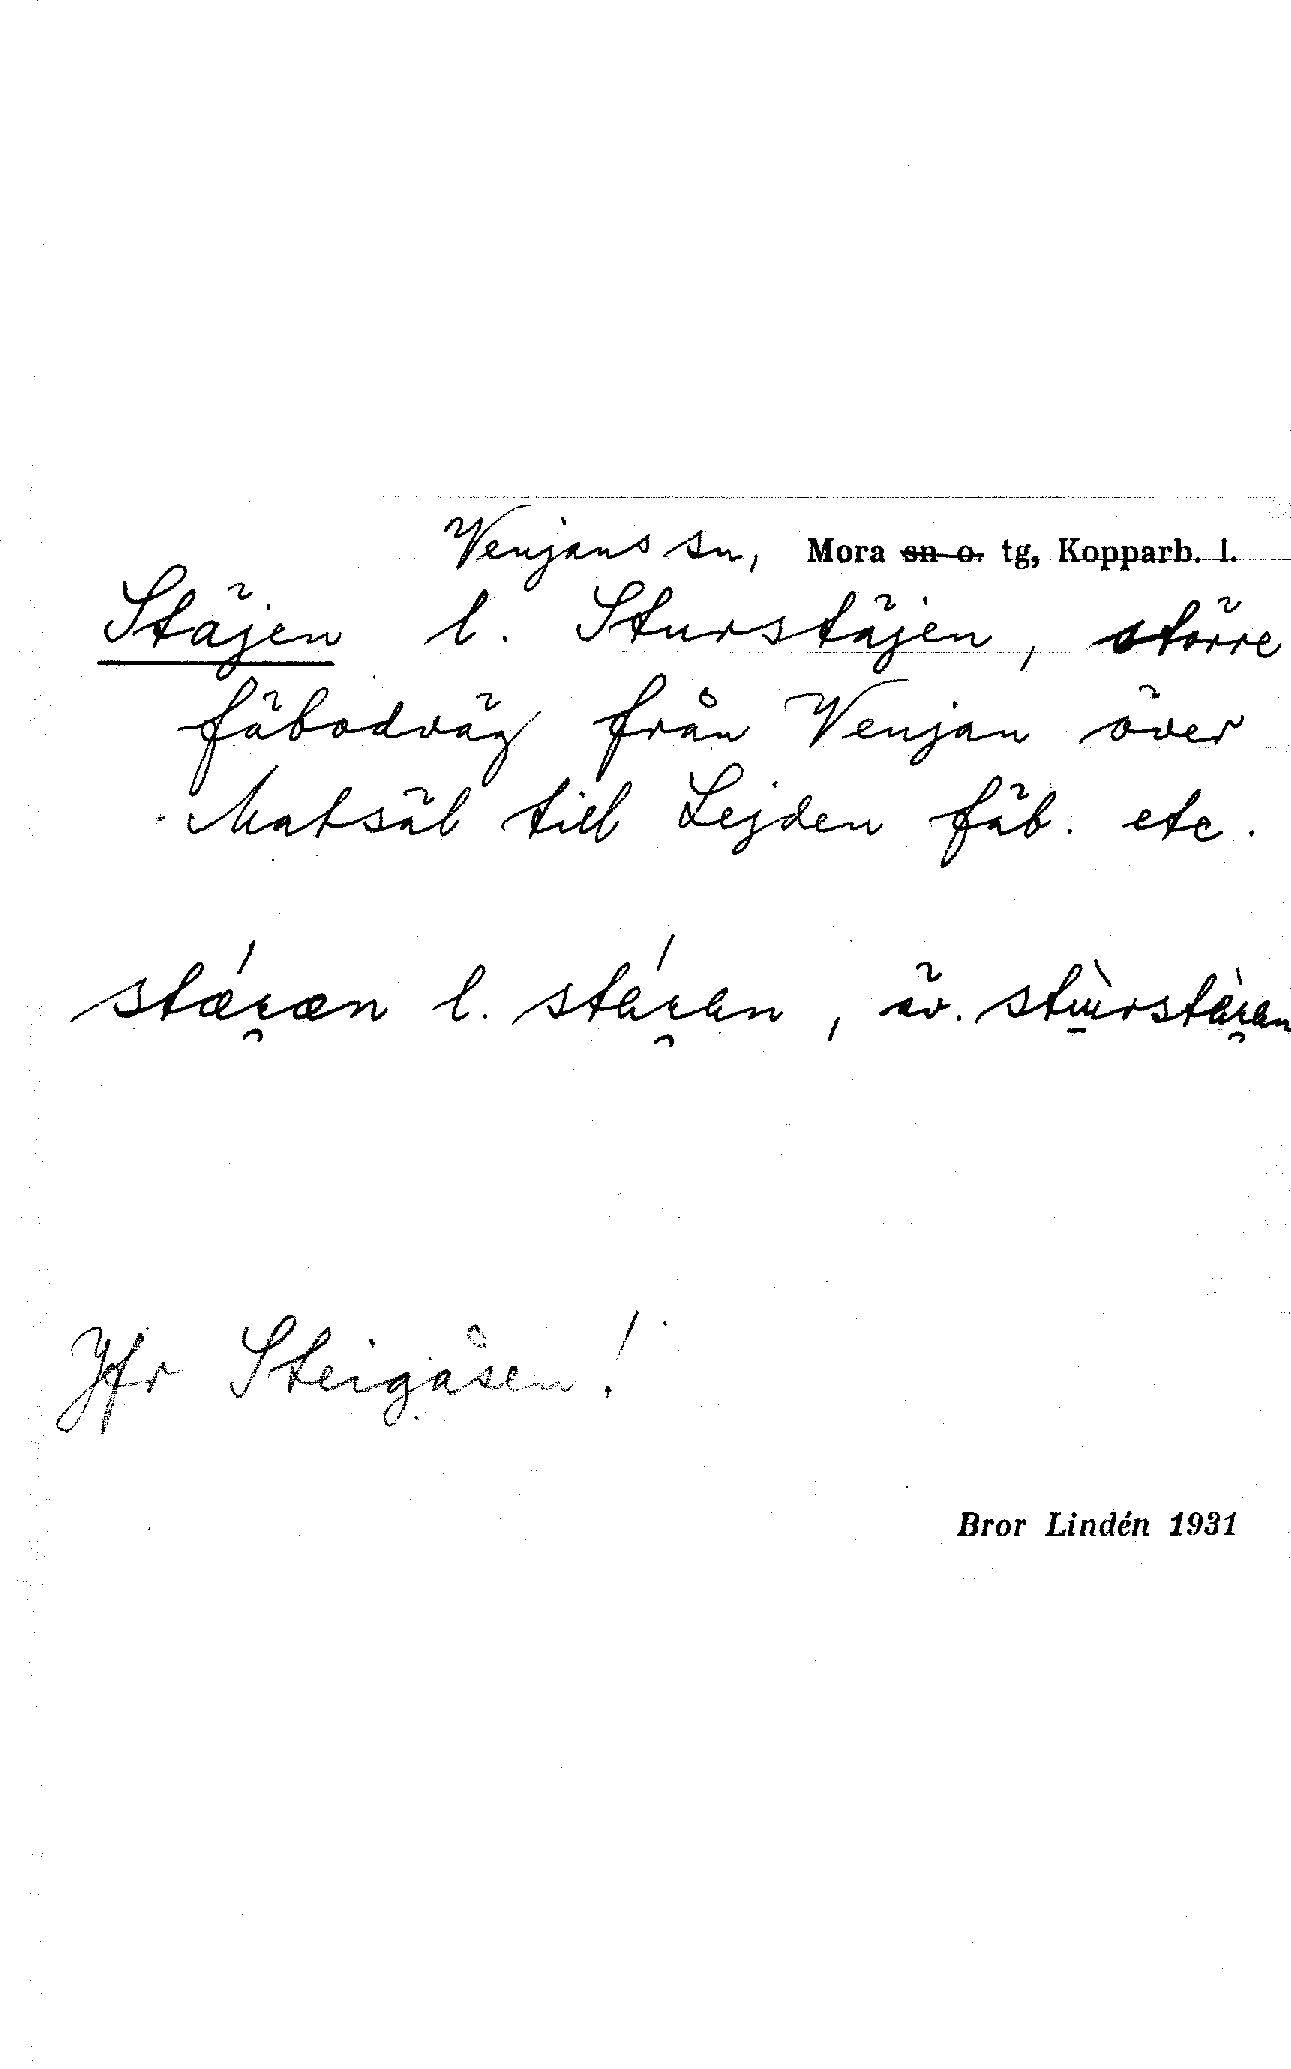 Venjans sn, Mora sn o. tg, Kopparb. l.
Stäjen l. Sturstäjen, större
fäbodväg från Venjan över
Matsäl till Lejden fäb. etc.
l. , äv.
Jfr Steigåsen!
Bror Lindén 1931